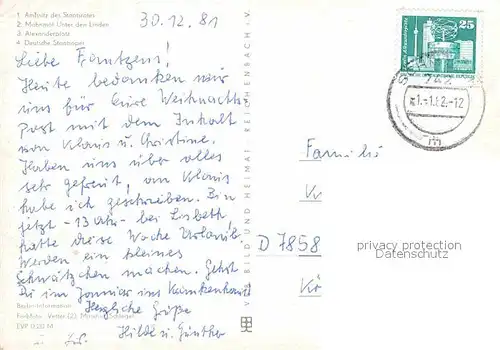 1 Amtssitz des Staatsrates
2. Mahnmal Unter den Linden
3 Alexanderplatz
4 Deutsche Staatsoper
30.12.81
Liebe Frantzens!
Heute bedanken wir
uns für Eure Weihnachts
post mit dem Inhalt
von Klaus u. Christine.
Haben uns über alles
sehr gefreut, an Klaus
habe ich geschrieben. Bin
jetzt - 13 Uhr - bei Lisbeth,
hatte diese Woche Urlaub.
Werden ein kleines
Schwätzchen machen. Gehst
Du im Januar ins Krankenhaus?
Herzliche Grüße
Hilde u. Günther
EVP 0,20 M
BILD UND HEIMAT REICHENBACH i. V.
25
-1.-1.82.-12
Familie
D 7858
privacy protection
Datenschutz